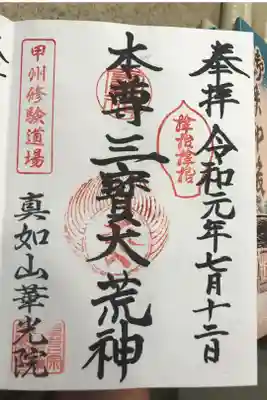 奉拝 令和元年七月十二日
本尊三寳大荒神
甲州修験道場
真如山華光院